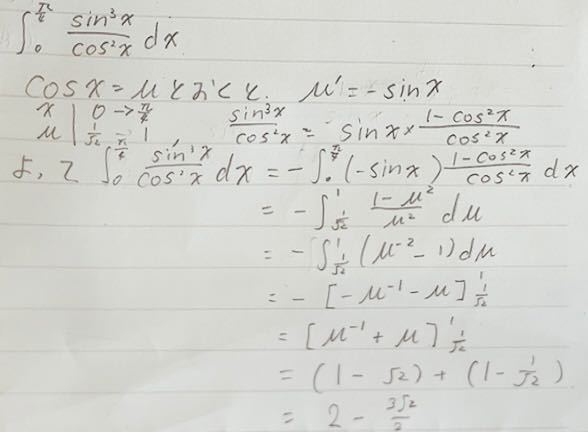 ∫₀^{π/4} sin³x/cos²x dx
cos x = u とおくと. u' = -sin x
x | 0 → π/4
u | 1/√2 → 1 sin³x/cos²x = sin x × (1 - cos²x)/cos²x
よって ∫₀^{π/4} sin³x/cos²x dx = -∫₀^{π/4} (-sin x) (1 - cos²x)/cos²x dx
= -∫_{1/√2}^{1} (1 - u²)/u² du
= -∫_{1/√2}^{1} (u⁻² - 1) du
= - [-u⁻¹ - u]_{1/√2}^{1}
= [u⁻¹ + u]_{1/√2}^{1}
= (1 - √2) + (1 - 1/√2)
= 2 - 3√2/2